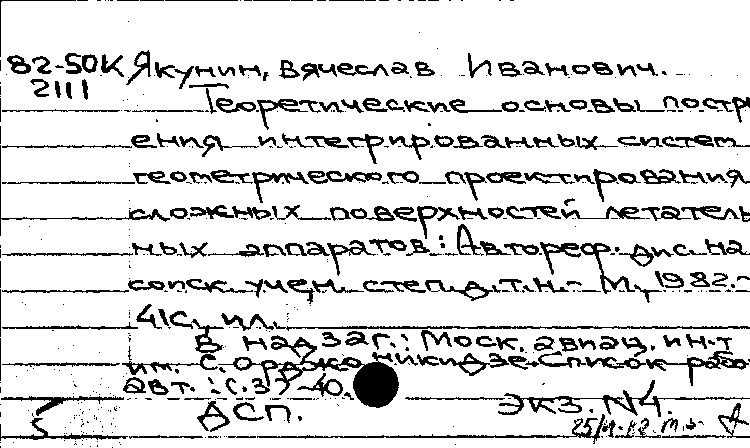 82-50К Якунин, Вячеслав Иванович.
2111
Теоретические основы постро
ения интегрированных систем
геометрического проектирования
сложных поверхностей летатель
ных аппаратов: Автореф. дис. на
соиск. учен. степ. д.т.н. - М., 1982. -
41с., ил.
В надзаг.: Моск. авиац. ин-т
им. С. Орджоникидзе. Список работ
авт.: с. 37-40.
ДСП. Экз. N4.
5